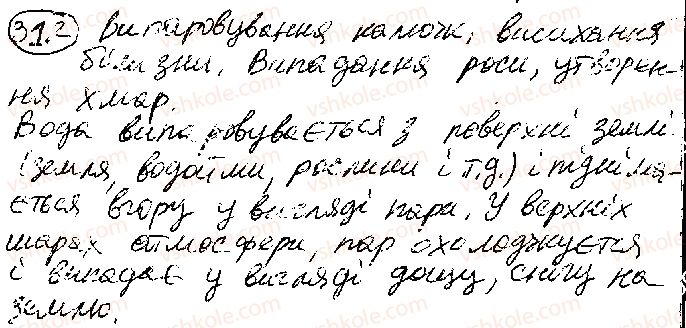 31.2 Випаровування калюж, висихання
білизни. Випадання роси, утворен-
ня хмар.
Вода випаровувається з поверхні землі
(земля, водойми, рослини і т.д.) і підніма-
ється вгору у вигляді пари. У верхніх
шарах атмосфери, пар охолоджується
і випадає у вигляді дощу, снігу на
землю.